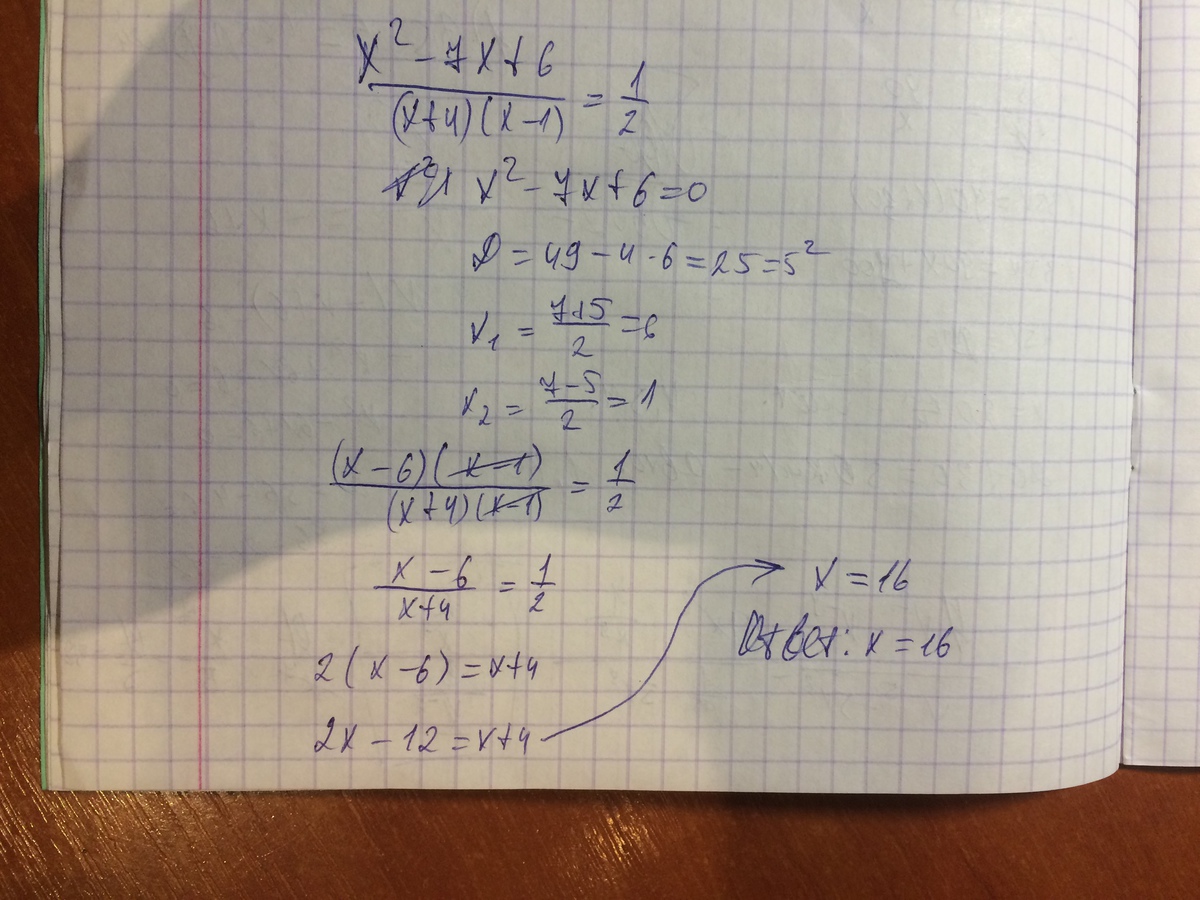 x² - 7x + 6 / (x+4)(x-1) = 1/2
x² - 7x + 6 = 0
D = 49 - 4 · 6 = 25 = 5²
x₁ = 7+5 / 2 = 6
x₂ = 7-5 / 2 = 1
(x-6)(x-1) / (x+4)(x-1) = 1/2
x - 6 / x+4 = 1/2
2(x-6) = x+4
2x - 12 = x+4
x = 16
Ответ: x = 16